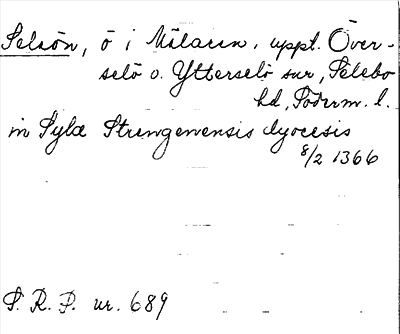 Selaön, ö i Mälaren, uppt. Över-
selö o. Ytterselö snr, Selebo
hd, Söderm. l.
in Sylæ Strengenensis dyocesis
8/2 1366
S. R. P. nr. 689